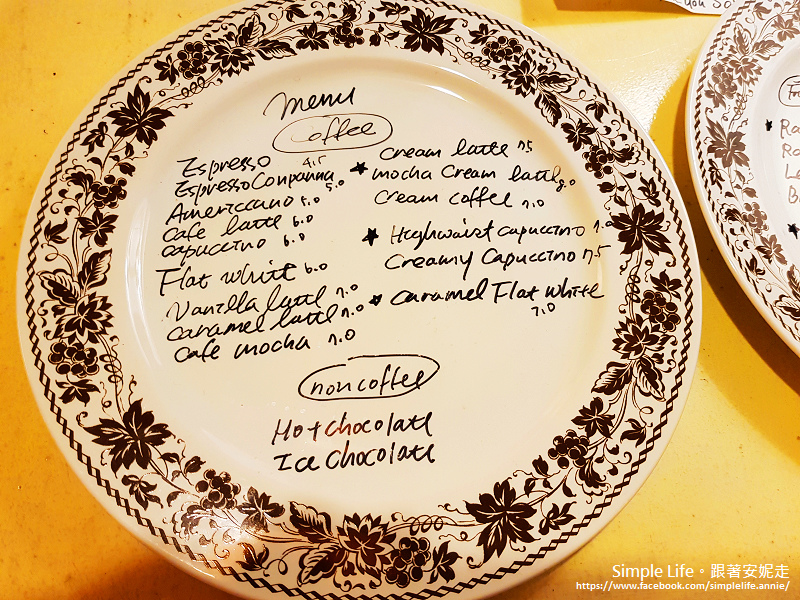 menu
coffee
Espresso 4.5
Espresso Conpanna 5.0
Americcano 5.0
Cafe latte 6.0
Capuccino 6.0
Flat white 6.0
Vanilla latte 7.0
Caramel latte 7.0
Cafe mocha 7.0
Cream latte 7.5
★ mocha Cream latte 8.0
Cream coffee 7.0
★ Highwaist capuccino 7.0
Creamy Capuccino 7.5
★ Caramel Flat white
7.0
non coffee
Hot chocolate
Ice chocolate
Simple Life。跟著安妮走
https://www.facebook.com/simplelife.annie/